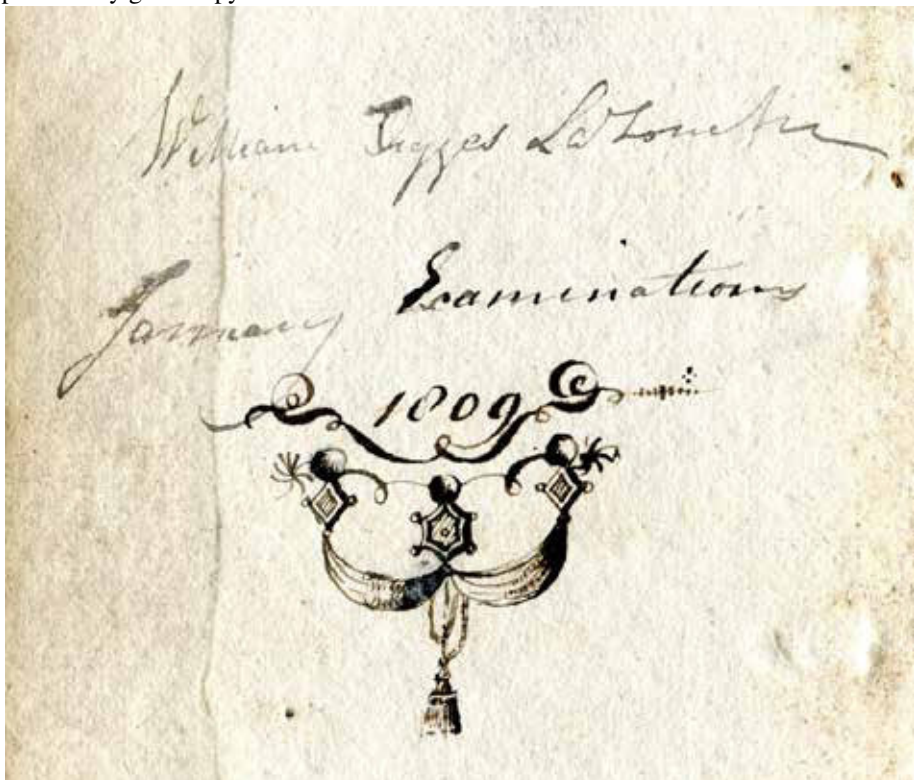 William Digges LaTouche
January Examinations
1809